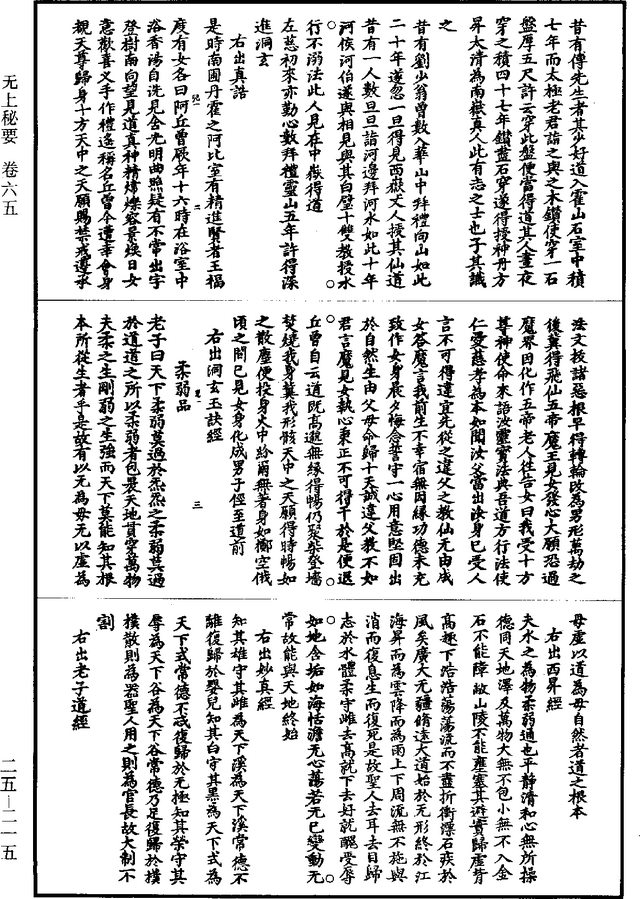 无上秘要 卷六五
二五—二一五
昔有傅先生者其少好道入霍山石室中積
七年而太極老君詣之與之木鑽使穿一石
盤厚五尺許云穿此盤便當得道其人晝夜
穿之積四十七年鑽盡石穿遂得授神丹方
昇太清為南嶽真人此有志之士也子其識
之
昔有劉少翁曾數入華山中拜禮向山如此
二十年遂忽一旦得見西嶽丈人授其仙道
昔有一人數旦旦詣河邊拜河水如此十年
河侯河伯遂與相見與其白璧十雙教授水
行不溺法此人見在中嶽得道
左慈初來亦勤心數拜禮靈山五年許得深
進洞玄
右出真誥
是時南圃丹霍之阿比室有精進賢者王福
度有女名曰阿丘曾厥年十六時在浴室中
浴香湯自洗見舍光明曲照疑有不常出宇
登樹南向望見道真神精煒爍容景煥日女
意歡喜叉手作禮遙稱名丘曾今遭幸會身
覲天尊歸身十方天中之天願賜禁戒遵承
法文拔諸惡根早得轉輪改為男形萬劫之
後冀得飛仙五帝魔王見女發心大願恐過
魔界因化作五帝老人往告女曰我受十方
尊神使命來語汝靈寶法與吾道方行法使
仁愛慈孝為本如聞汝父當出汝身已受人
言不可得違宜先從之違父之教仙无由成
女荅魔言我前生不幸宿無因緣功德未充
致作女身晨夕悔念誓守一心用意堅固出
於自然生由父母命歸十天誠違父教不如
君言魔見女執心秉正不可得干於是便退
丘曾自云道既高遼無緣得暢仍聚柴登墻
焚燒我身冀我形骸天中之天願得時暢如
之散塵便投身火中紛爾無著身如擲空俄
頃之間已見女身化成男子徑至道前
右出洞玄玉訣經
柔弱品
老子曰天下柔弱莫過於炁炁之柔弱莫過
於道道之所以柔弱者包裹天地貫穿萬物
夫柔之生剛弱之生強而天下莫能知其根
本所從生者乎是故有以无為母无以虛為
母虛以道為母自然者道之根本
右出西昇經
夫水之為物柔弱通也平靜清和心無所操
德同天地澤及萬物大無不包小無不入金
石不能障故山陵不能壅塞其避實歸虛背
高趣下浩浩蕩蕩流而不盡折衝漂石疾於
風矣廣大无疆脩遠大道始於无形終於江
海昇而為雲降而為雨上下周流無不施與
消而復息生而復死是故聖人去耳去目歸
志於水體柔守雌去高就下去好就醜受辱
如地含垢如海恬澹无心蕩若无已變動无
常故能與天地終始
右出妙真經
知其雄守其雌為天下溪為天下溪常德不
離復歸於嬰兒知其白守其黑為天下式為
天下式常德不忒復歸於无極知其榮守其
辱為天下谷為天下谷常德乃足復歸於樸
樸散則為器聖人用之則為官長故大制不
割
右出老子道經
三